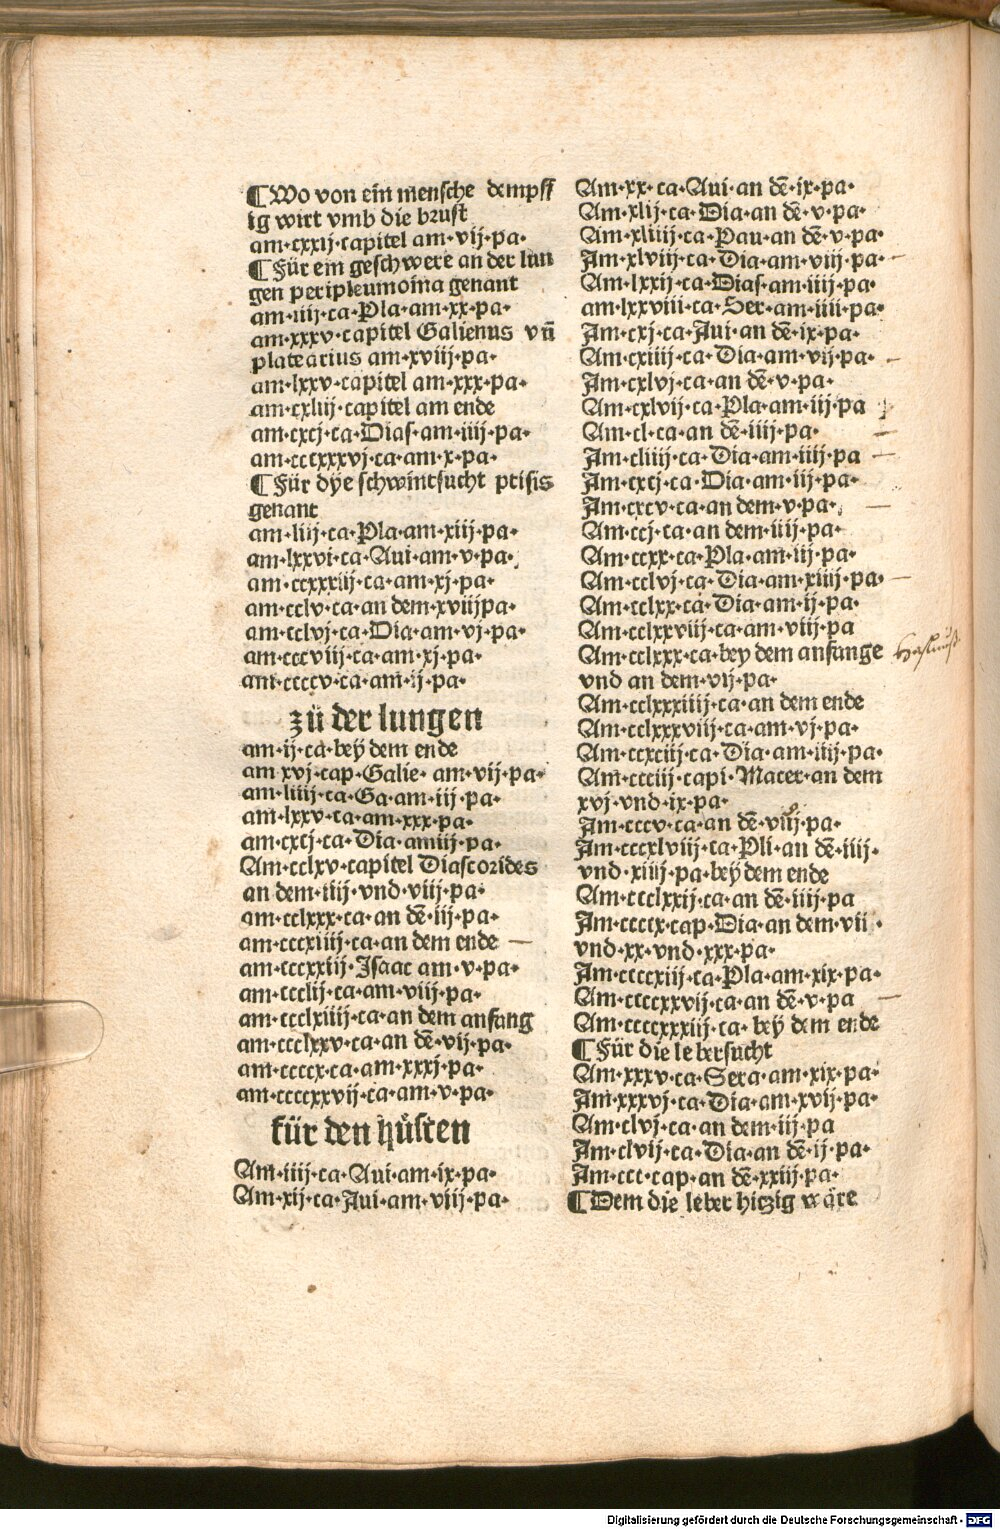 ¶Wo von ein mensche dempff
ig wirt vmb die brust
am·cxxij·capitel am·vij·pa·
¶Für ein geschwere an der lun
gen peripleumoma genant
am·iiij·ca·Pla·am·xx·pa·
am·xxxv·capitel Galienus vn̄
platearius am·xviij·pa·
am·lxxv·capitel am·xxx·pa·
am·cxliij·capitel am ende
am·cxcj·ca·Dias·am·iiij·pa·
am·cccxxxvj·ca·am·x·pa·
¶Für dÿe schwintsucht ptisis
genant
am·liij·ca·Pla·am·xiij·pa·
am·lxxvi·ca·Aui·am·v·pa·
am·ccxxxiij·ca·am·xj·pa·
am·cclv·ca·an dem·xviijpa·
am·cclvj·ca·Dia·am·vj·pa·
am·cccviij·ca·am·xj·pa·
am·ccccv·ca·am·ij·pa·
zů der lungen
am·ij·ca·beÿ dem ende
am xvj·cap·Galie· am·vij·pa·
am·liiij·ca·Ga·am·iij·pa·
am·lxxv·ca·am·xxx·pa·
am·cxcj·ca·Dia·amiij·pa·
Am·cclxv·capitel Diascorides
an dem·iiij·vnd·viij·pa·
am·cclxxx·ca·an dē·iij·pa·
am·cccxiiij·ca·an dem ende
am·cccxxiij·Isaac am·v·pa·
am·ccclij·ca·am·viij·pa·
am·ccclxiiij·ca·an dem anfang
am·ccclxxv·ca·an dē·vij·pa·
am·ccccx·ca·am·xxxj·pa·
am·ccccxxvij·ca·am·v·pa·
für den hůsten
Am·iiij·ca·Aui·am·ix·pa·
Am·xij·ca·Aui·am·viij·pa·
Am·xx·ca·Aui·an dē·ix·pa·
Am·xlij·ca·Dia·an dē·v·pa·
Am·xliiij·ca·Pau·an dē·v·pa·
Am·xlviij·ca·Dia·am·viij·pa·
Am·lxxij·ca·Dias·am·iiij·pa·
am·lxxviii·ca·Ser·am·iiii·pa·
Am·cxj·ca·Aui·an dē·ix·pa·
Am·cxiiij·ca·Dia·am·vij·pa·
Am·cxlvj·ca·an dē·v·pa·
Am·cxlvij·ca·Pla·am·iij·pa
Am·cl·ca·an dē·iiij·pa·
Am·cliiij·ca·Dia·am·iiij·pa
Am·cxcj·ca·Dia·am·iij·pa·
Am·cxcv·ca·an dem·v·pa·
Am·ccj·ca·an dem·iiij·pa·
Am·ccxx·ca·Pla·am·iij·pa·
Am·cclvj·ca·Dia·am·xiiij·pa·
Am·cclxx·ca·Dia·am·ij·pa·
Am·cclxxviij·ca·am·viij·pa
Am·cclxxx·ca·bey dem anfange
vnd an dem·vij·pa·
Am·cclxxxiiij·ca·an dem ende
Am·cclxxxviij·ca·am·vj·pa·
Am·ccxciij·ca·Dia·am·iiij·pa·
Am·ccciij·capi·Macer·an dem
xvj·vnd·ix·pa·
Am·cccv·ca·an dē·viij·pa·
Am·cccxlviij·ca·Pli·an dē·iiij·
vnd·xiiij·pa·beÿ dem ende
Am·ccclxxij·ca·an dē·iiij·pa
Am·ccccx·cap·Dia·an dem·vii·
vnd·xx·vnd·xxx·pa·
Am·ccccxiij·ca·Pla·am·xix·pa·
Am·ccccxxvij·ca·an dē·v·pa
Am·ccccxxxiij·ca·beÿ dem ende
¶Für die le bersucht
Am·xxxv·ca·Sera·am·xix·pa·
Am·xxxvj·ca·Dia·am·xvij·pa·
Am·clvj·ca·an dem·iij·pa
Am·clvij·ca·Dia·an dē·ij·pa·
Am·ccc·cap·an dē·xxiij·pa·
¶Dem die leber hitzig wäre
Digitalisierung gefördert durch die Deutsche Forschungsgemeinschaft - DFG